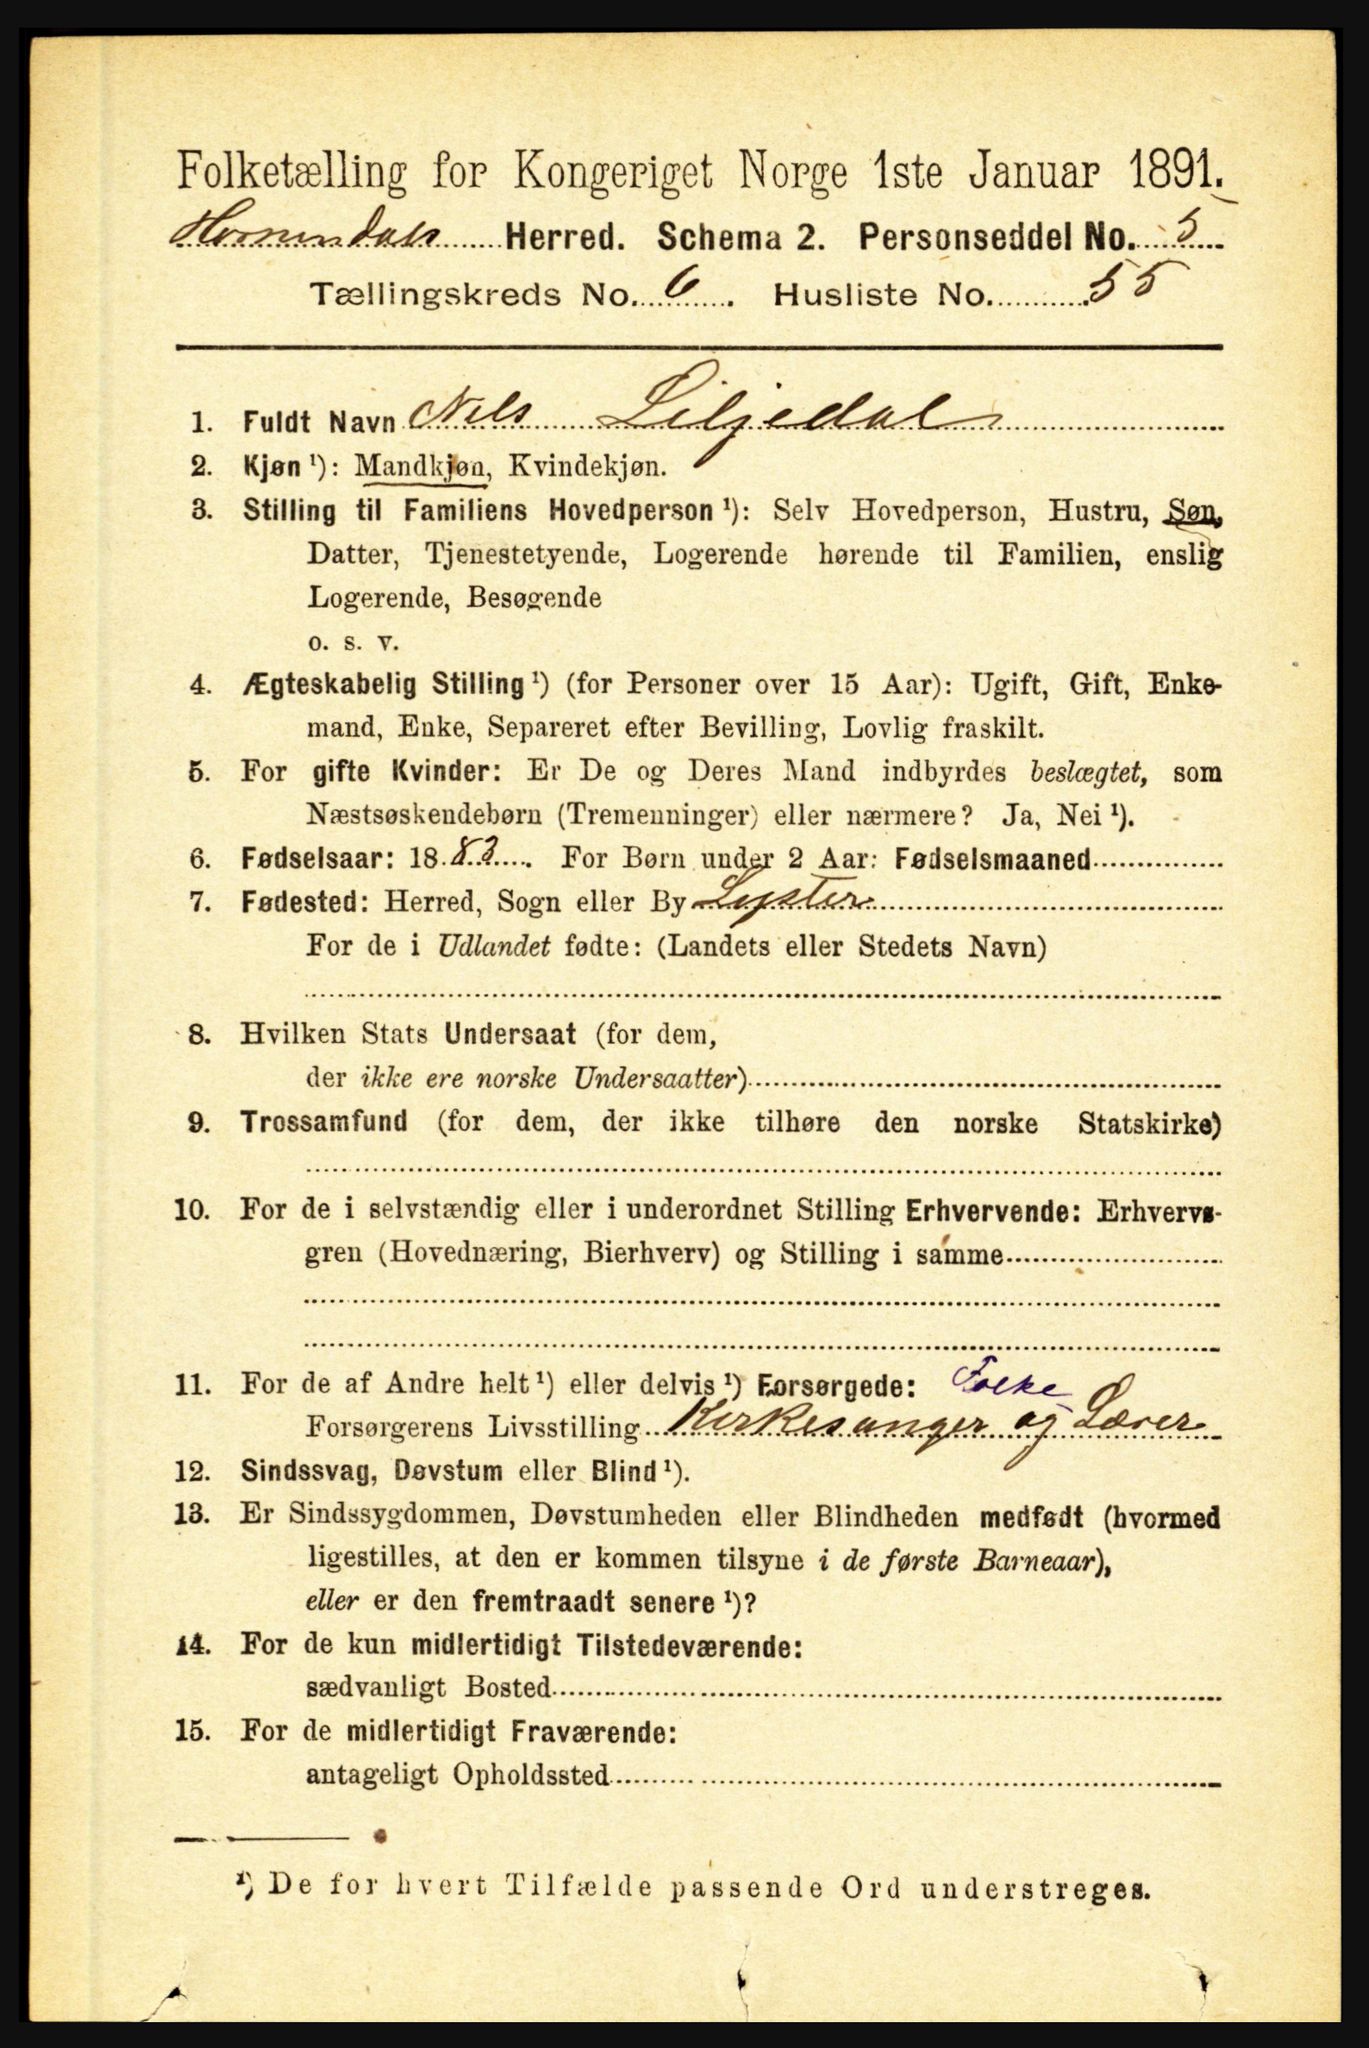 Folketælling for Kongeriget Norge 1ste Januar 1891.
Hornindals Herred. Schema 2. Personseddel No. 5
Tællingskreds No. 6. Husliste No. 55
1. Fuldt Navn Nils Liljedal
2. Kjøn ¹): Mandkjøn, Kvindekjøn.
3. Stilling til Familiens Hovedperson ¹): Selv Hovedperson, Hustru, Søn,
Datter, Tjenestetyende, Logerende hørende til Familien, enslig
Logerende, Besøgende
o. s. v.
4. Ægteskabelig Stilling ¹) (for Personer over 15 Aar): Ugift, Gift, Enke-
mand, Enke, Separeret efter Bevilling, Lovlig fraskilt.
5. For gifte Kvinder: Er De og Deres Mand indbyrdes beslægtet, som
Næstsøskendebørn (Tremenninger) eller nærmere? Ja, Nei ¹).
6. Fødselsaar: 1883. For Børn under 2 Aar: Fødselsmaaned
7. Fødested: Herred, Sogn eller By Lyster
For de i Udlandet fødte: (Landets eller Stedets Navn)
8. Hvilken Stats Undersaat (for dem,
der ikke ere norske Undersaatter)
9. Trossamfund (for dem, der ikke tilhøre den norske Statskirke)
10. For de i selvstændig eller i underordnet Stilling Erhvervende: Erhvervs-
gren (Hovednæring, Bierhverv) og Stilling i samme
11. For de af Andre helt ¹) eller delvis ¹) Forsørgede: Folke
Forsørgerens Livsstilling Kirkesanger og Lærer
12. Sindssvag, Døvstum eller Blind ¹).
13. Er Sindssygdommen, Døvstumheden eller Blindheden medfødt (hvormed
ligestilles, at den er kommen tilsyne i de første Barneaar),
eller er den fremtraadt senere ¹)?
14. For de kun midlertidigt Tilstedeværende:
sædvanligt Bosted
15. For de midlertidigt Fraværende:
antageligt Opholdssted
¹) De for hvert Tilfælde passende Ord understreges.